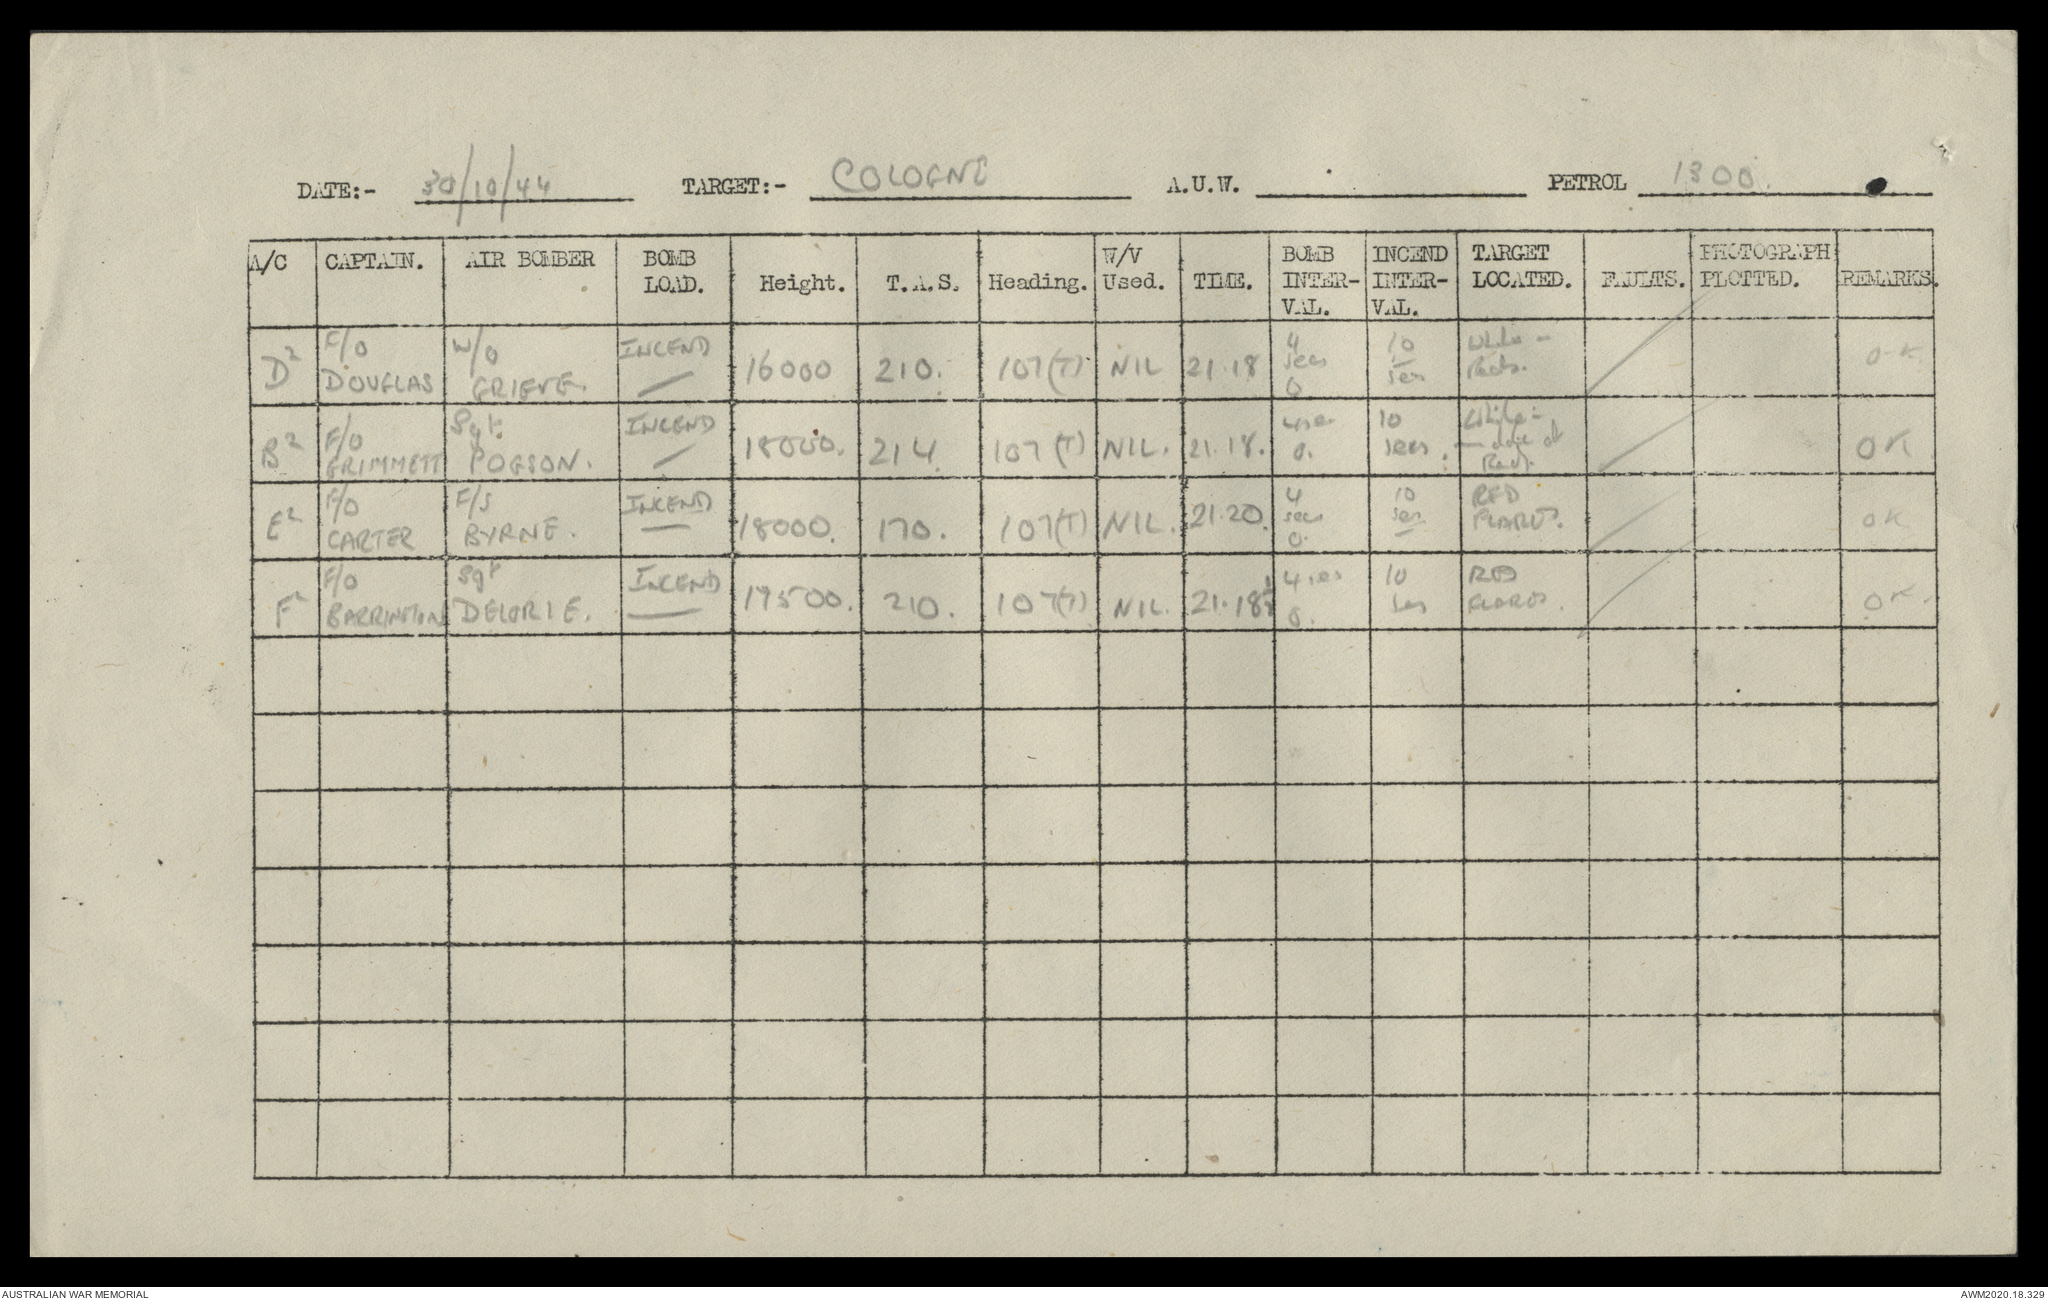 DATE:- 30/10/44 TARGET:- COLOGNE A.U.W. PETROL 1300.
A/C CAPTAIN. AIR BOMBER BOMB LOAD. Height. T.A.S. Heading. W/V Used. TIME. BOMB INTER-VAL. INCEND INTER-VAL. TARGET LOCATED. FAULTS. PHOTOGRAPH PLOTTED. REMARKS.
D2 F/O DOUGLAS W/O GRIEVE. INCEND 16000 210. 107(T) NIL 21.18 4 secs 0 10 sec White - Reds. O.K.
B2 F/O GRIMMETT Sgt POGSON. INCEND 18000. 214. 107(T) NIL. 21.18. 4 sec 0. 10 secs. White - of Reds. OK
E2 F/O CARTER F/S BYRNE. INCEND 18000. 170. 107(T) NIL. 21.20. 4 secs 0. 10 sec RED FLARES. OK
F2 F/O BARRINGTON Sgt DELORIE. INCEND 17500. 210. 107(T) NIL. 21.18½ 4 secs 0. 10 secs RED FLARES. OK.
AUSTRALIAN WAR MEMORIAL
AWM2020.18.329